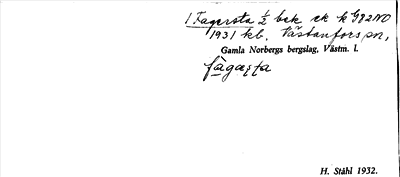 1 Fagersta ½ bek ek k G92NO
1931 kb. Västanfors sn,
Gamla Norbergs bergslag, Västm. l.
fàgaṣṭa
H. Ståhl 1932.